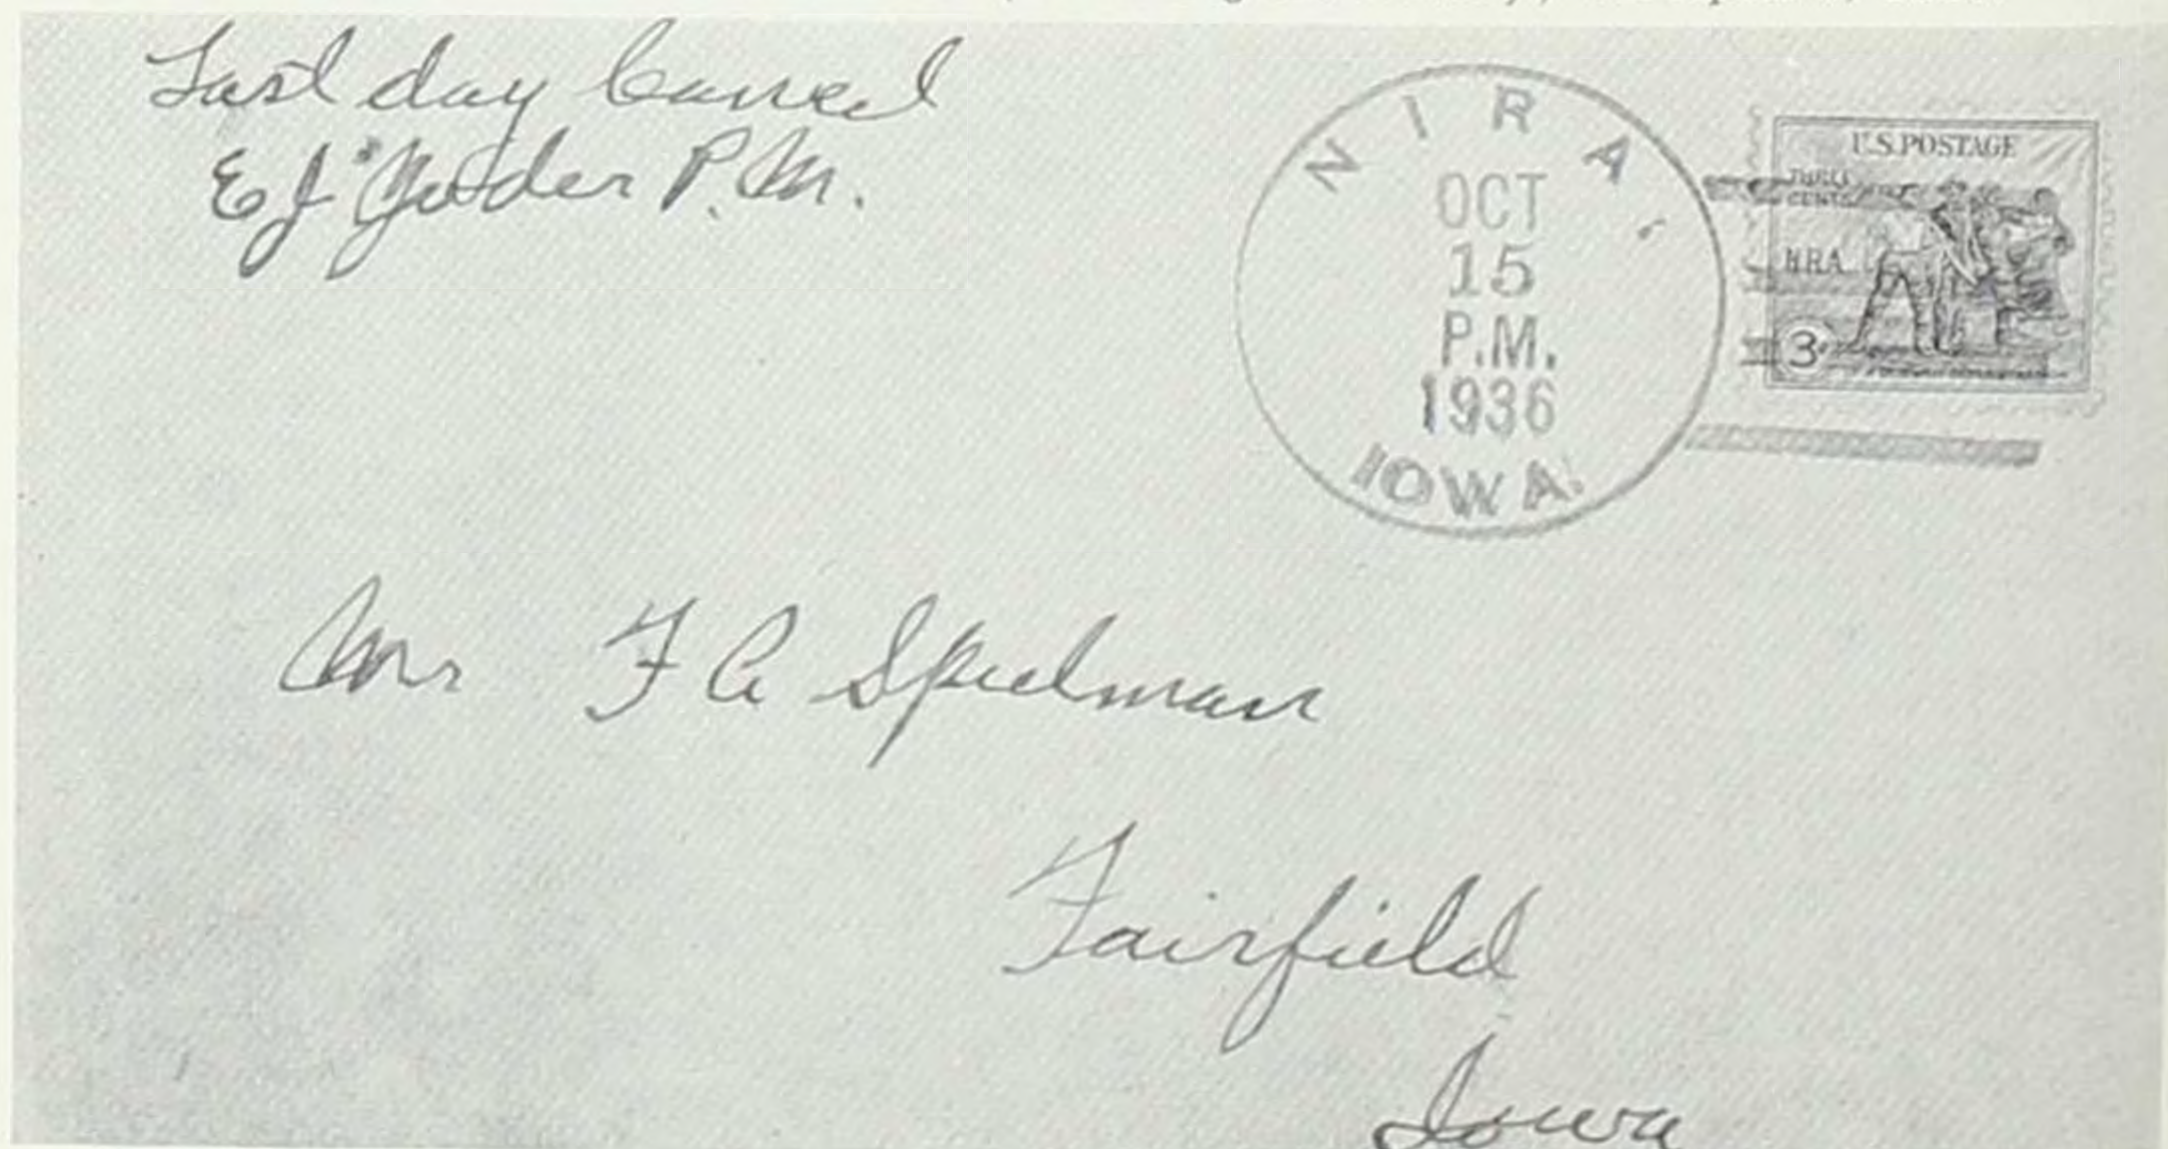 Last day Cancel
E J Yoder P.M.
NIRA,
OCT
15
P.M.
1936
IOWA.
U.S. POSTAGE
THREE
CENTS
N.R.A.
3¢
Mr F A Spielman
Fairfield
Iowa